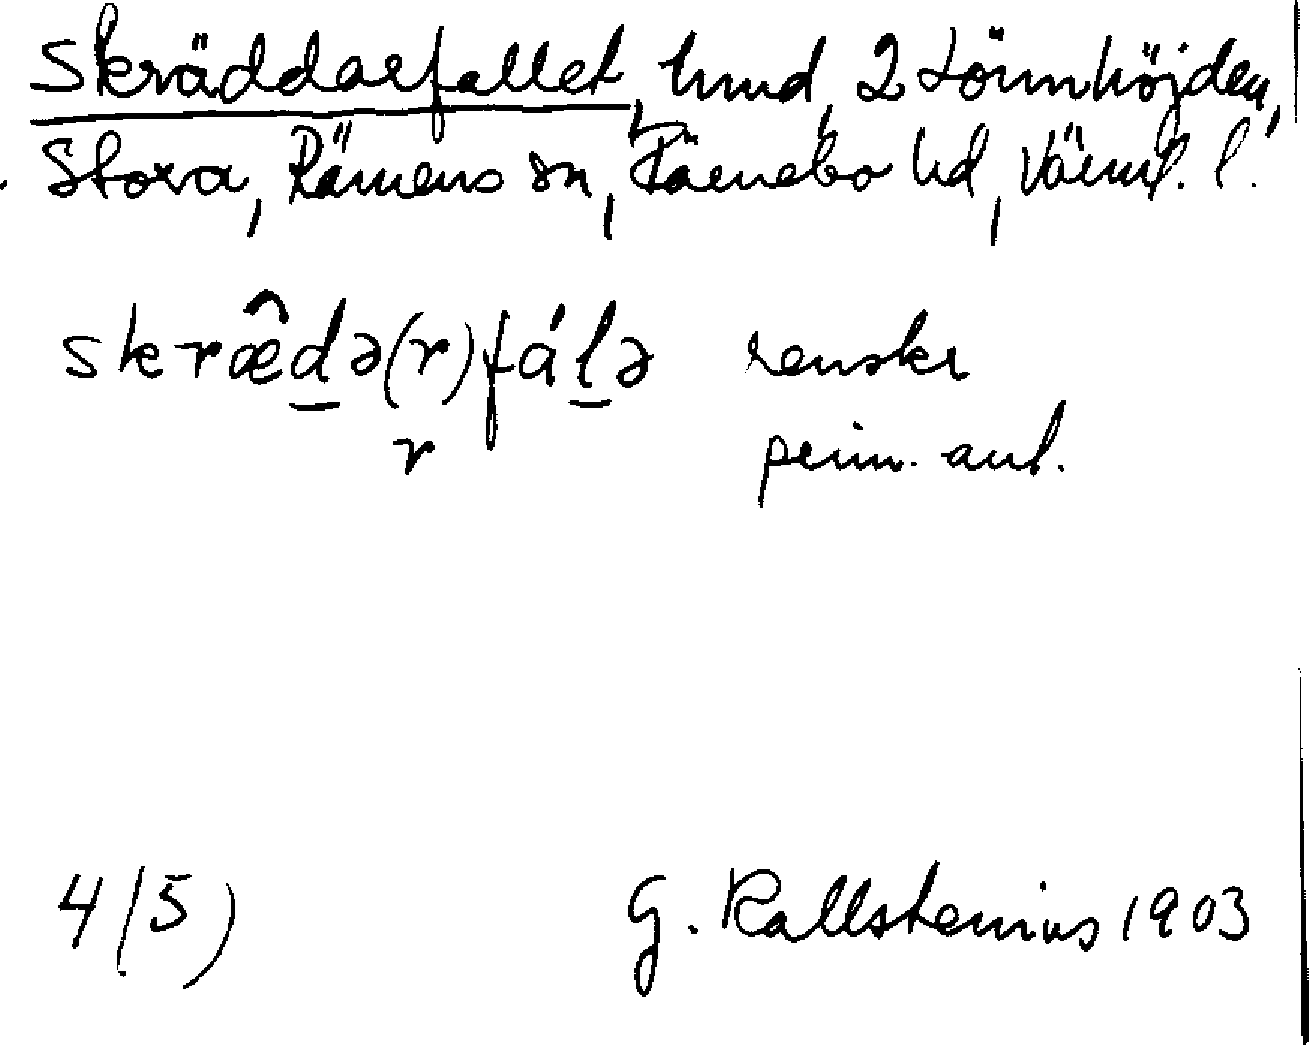 Skräddarfallet, hmd, 2 Lönnhöjden,
Stora, Rämens sn, Färnebo hd, Värml. l.
skræ̂d̲ə(r)fál̲ə renskr
r prim. aut.
4/5) G. Kallstenius 1903